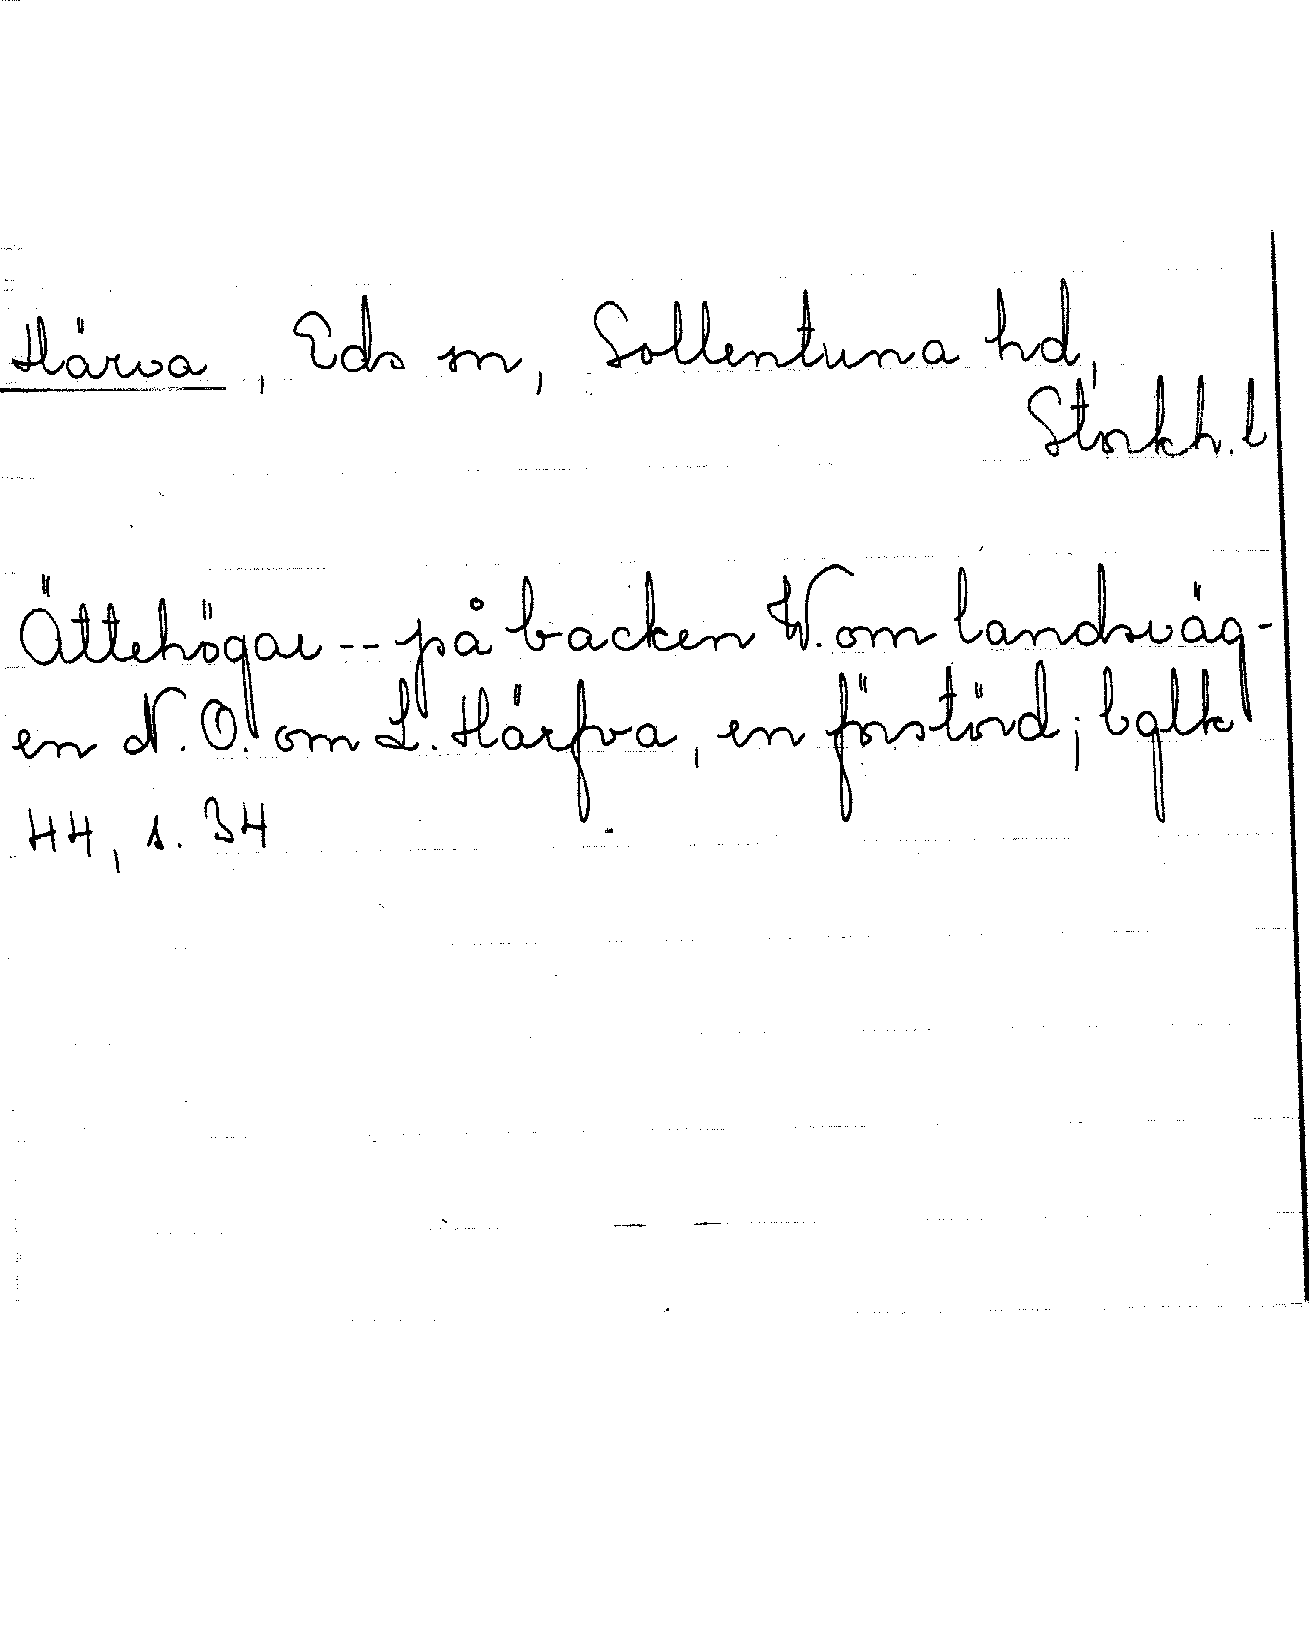 Härva, Eds sn, Sollentuna hd,
Stockh. l
Ättehögar -- på backen W. om landsväg-
en N. O. om L. Härfva, en förstörd; bglk
44, s. 34